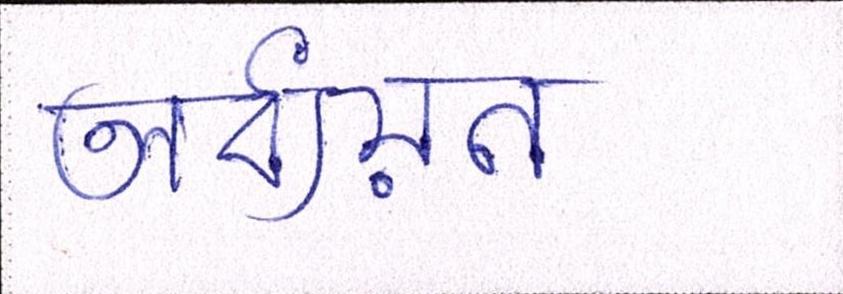 অর্থায়ন